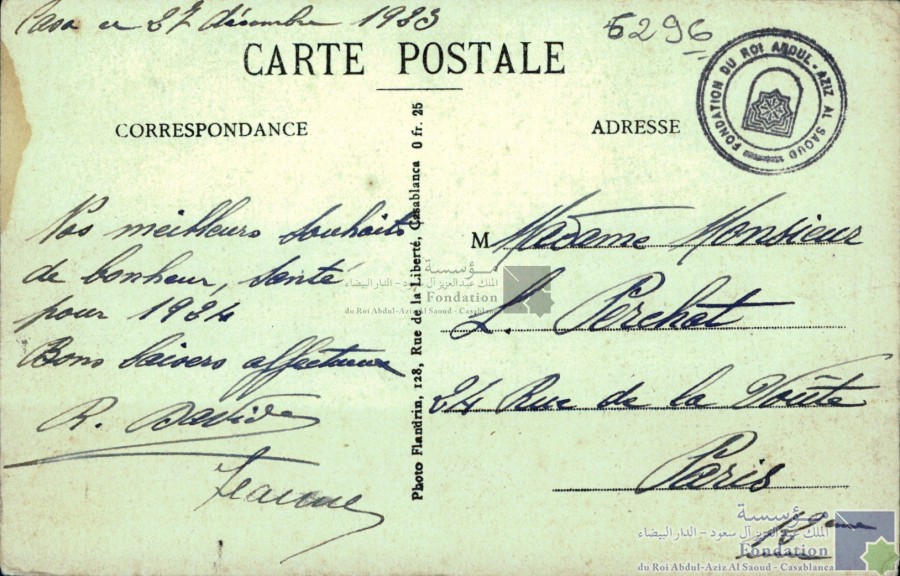 Casa ce 27 décembre 1933
6296
CARTE POSTALE
FONDATION DU ROI ABDUL-AZIZ AL SAOUD
CORRESPONDANCE
ADRESSE
Vos meilleurs souhaits
de bonheur, santé
pour 1934
Bons baisers affectueux
R.
Photo Flandrin, 128, Rue de la Liberté, Casablanca 0 fr. 25
M Madame Monsieur
L. Perchat
24 Rue de la Voûte
Paris
مؤسسة
الملك عبد العزيز آل سعود - الدار البيضاء
Fondation
du Roi Abdul-Aziz Al Saoud - Casablanca
مؤسسة
الملك عبد العزيز آل سعود - الدار البيضاء
Fondation
du Roi Abdul-Aziz Al Saoud - Casablanca